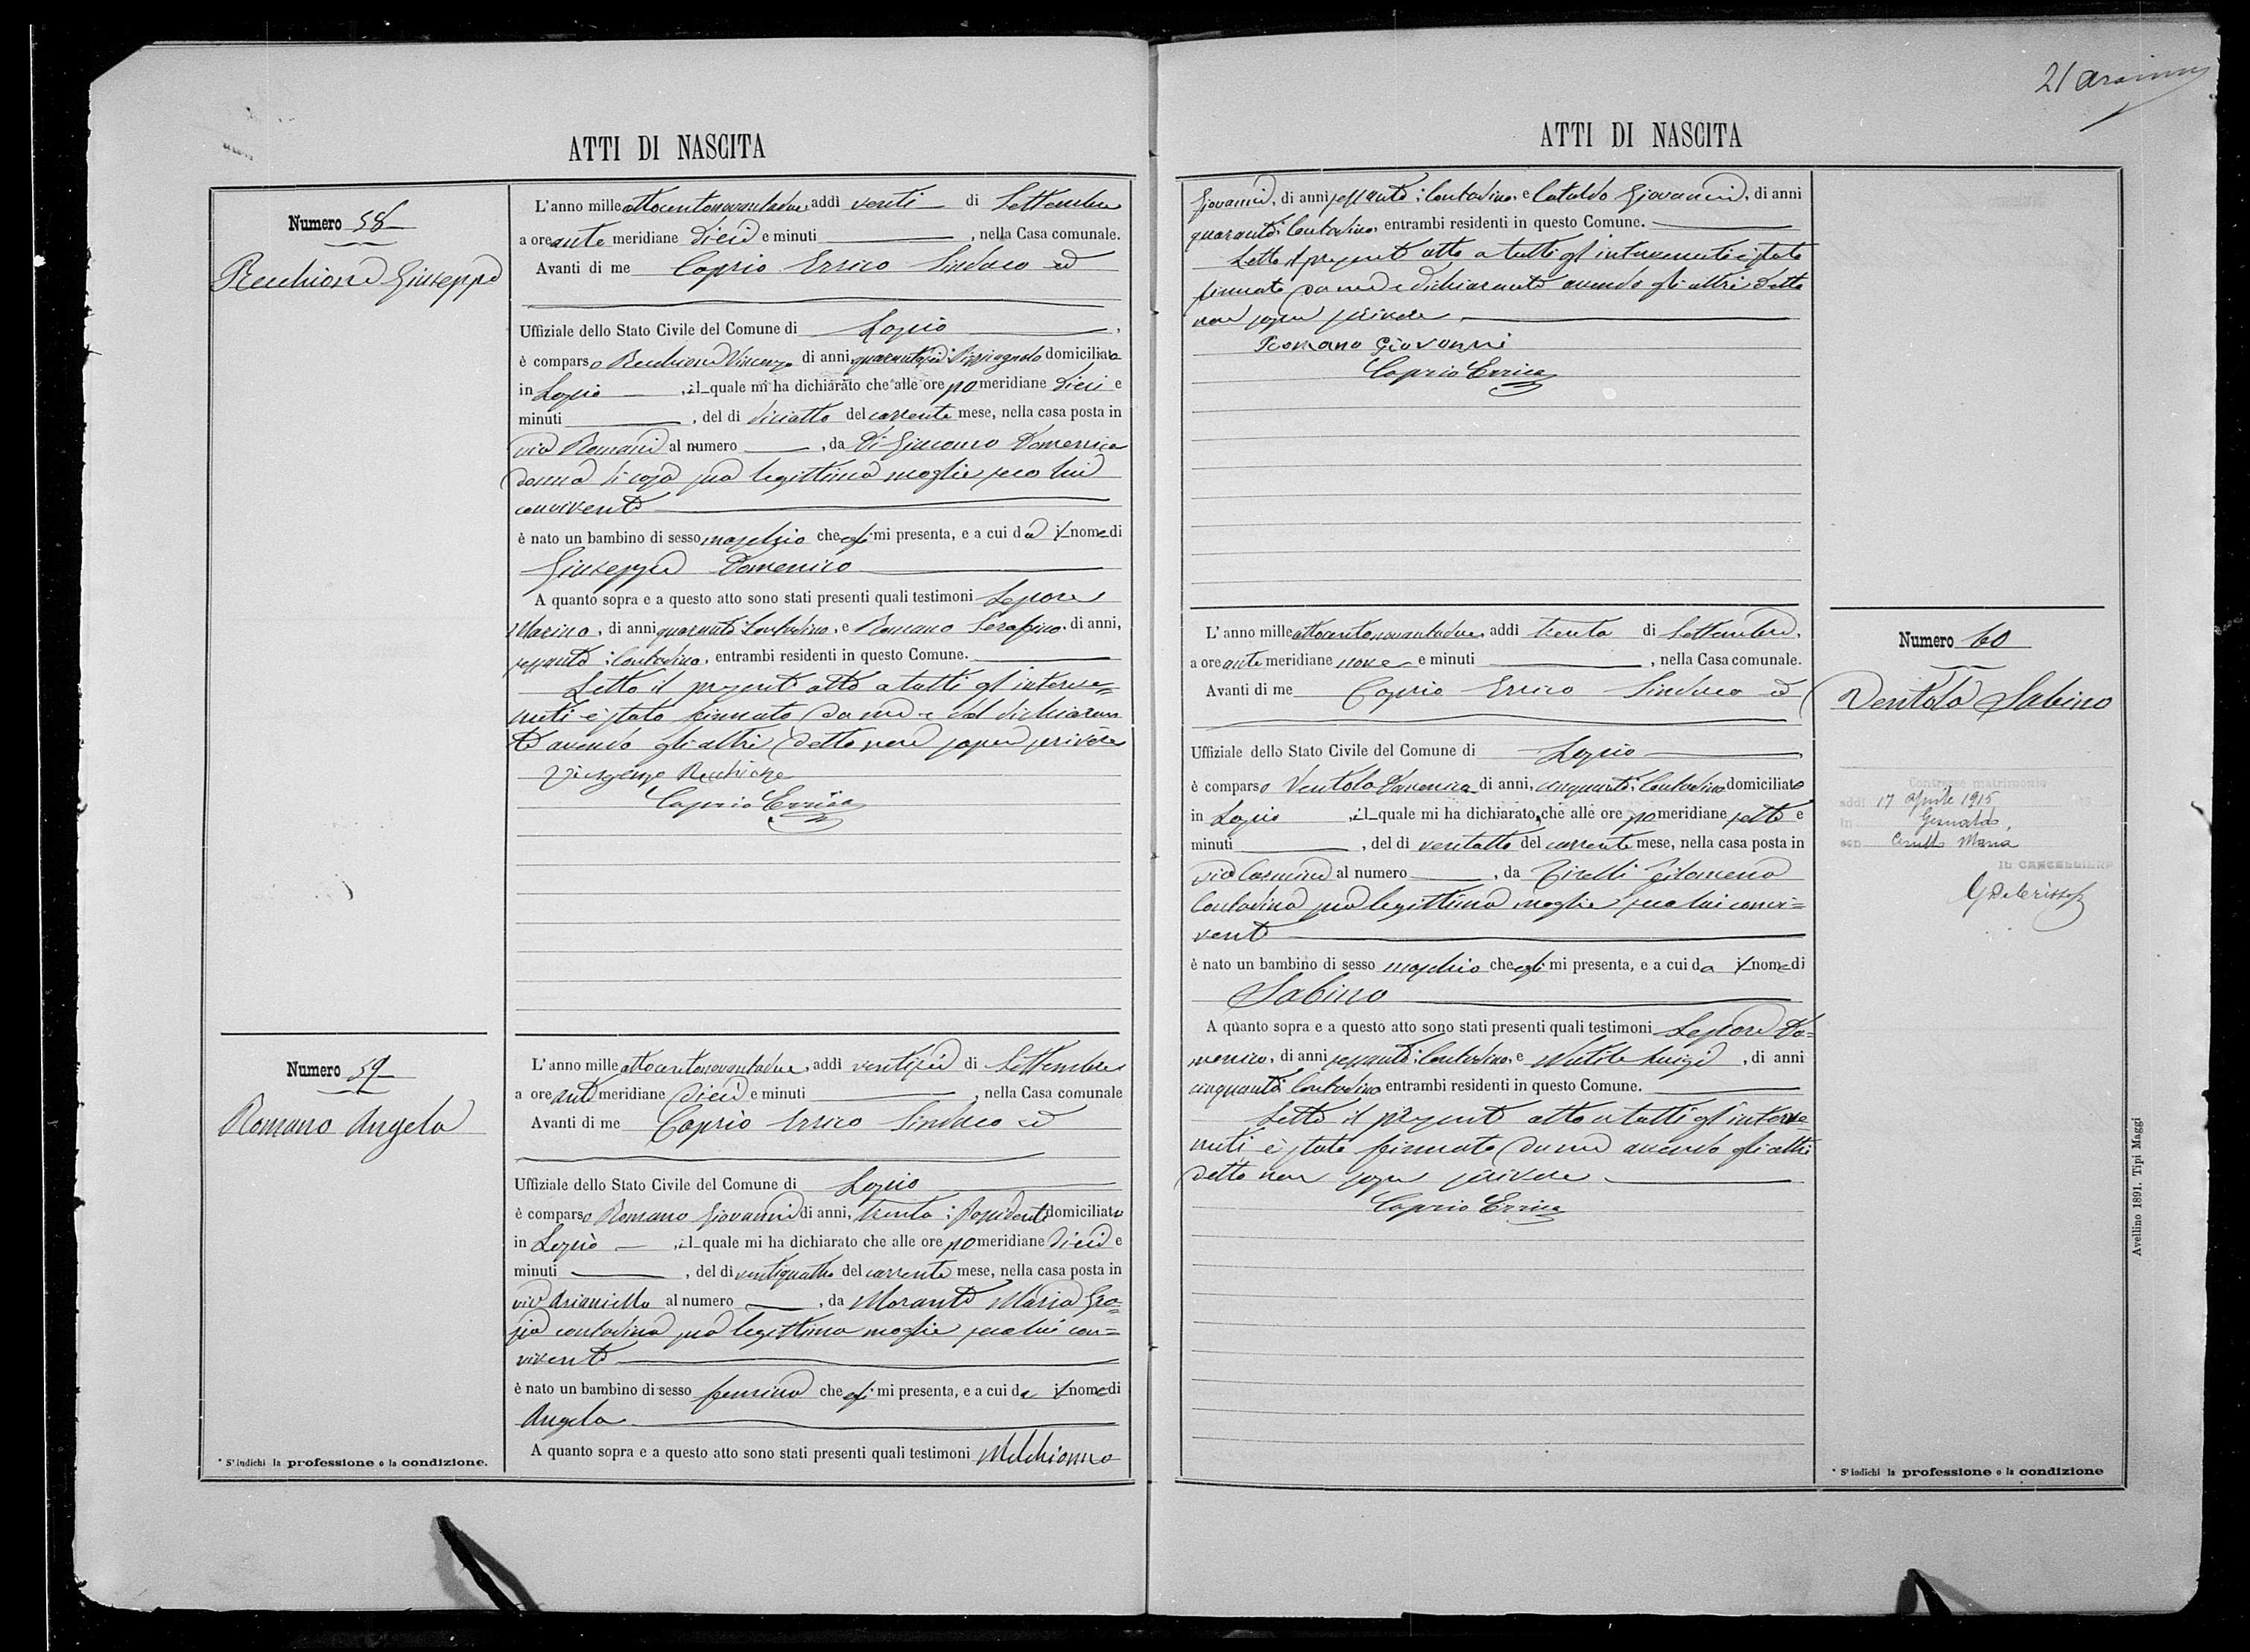 21 
ATTI DI NASCITA
Numero 58
Recchione Giuseppe
L'anno mille ottocentonovantadue, addì venti di Settembre
a ore ante meridiane dieci e minuti , nella Casa comunale.
Avanti di me Caprio Errico Sindaco ed
Uffiziale dello Stato Civile del Comune di Lapio ,
è comparso Recchione Vincenzo di anni quarantasei domiciliato
in Lapio , il quale mi ha dichiarato che alle ore pomeridiane dieci e
minuti , del dì diciotto del corrente mese, nella casa posta in
via Romani al numero , da Di Giacomo Domenica
donna di casa sua legittima moglie seco lui
convivente
è nato un bambino di sesso maschio che egli mi presenta, e a cui dà il nome di
Giuseppe Domenico
A quanto sopra e a questo atto sono stati presenti quali testimoni Lepore
Marino, di anni quaranta, Contadino, e Romano Serafino, di anni,
sessanta, Contadino, entrambi residenti in questo Comune.
Letto il presente atto a tutti gl'interve=
nuti è stato firmato da me e dal dichiaran
te avendo gli altri detto non saper scrivere
Vingenzo Recchione
Caprio Errico
Numero 59
Romano Angela
L'anno mille ottocentonovantadue, addì ventisei di Settembre
a ore ante meridiane dieci e minuti , nella Casa comunale
Avanti di me Caprio Errico Sindaco ed
Uffiziale dello Stato Civile del Comune di Lapio
è comparso Romano Giovanni di anni, trenta, Possidente domiciliato
in Lapio , il quale mi ha dichiarato che alle ore pomeridiane dieci e
minuti , del dì ventiquattro del corrente mese, nella casa posta in
via Arianiello al numero , da Morante Maria Gra=
zia contadina sua legittima moglie seco lui con=
vivente
è nato un bambino di sesso feminino che egli mi presenta, e a cui da il nome di
Angela
A quanto sopra e a questo atto sono stati presenti quali testimoni Melchionno
* S'indichi la professione o la condizione.
ATTI DI NASCITA
Giovanni, di anni sessanta, Contadino, e Cataldo Giovanni, di anni
quaranta, Contadino, entrambi residenti in questo Comune.
Letto il presente atto a tutti gl'intervenuti è stato
firmato da me e dichiarante avendo gli altri detto
non saper scrivere
Romano Giovanni
Caprio Errico
Numero 60
Ventola Sabino
L'anno mille ottocentonovantadue, addì trenta di Settembre,
a ore ante meridiane nove e minuti , nella Casa comunale.
Avanti di me Caprio Errico Sindaco ed
Uffiziale dello Stato Civile del Comune di Lapio
è comparso Ventola Domenico di anni, cinquanta, Contadino domiciliato
in Lapio , il quale mi ha dichiarato, che alle ore pomeridiane sette e
minuti , del dì ventotto del corrente mese, nella casa posta in
via Carmine al numero , da Tirelli Filomena
Contadina sua legittima moglie seco lui convi=
vente
è nato un bambino di sesso maschio che egli mi presenta, e a cui da il nome di
Sabino
A quanto sopra e a questo atto sono stati presenti quali testimoni Lepore Do=
menico, di anni sessanta, Contadino, e Nutile Luigi , di anni
cinquanta Contadino entrambi residenti in questo Comune.
Letto il presente atto a tutti gl'interve=
nuti è stato firmato da me avendo gli altri
detto non saper scrivere
Caprio Errico
Contrasse matrimonio
addì 17 Aprile 1915
in Gesualdo,
con Maria
IL CANCELLIERE
Avellino 1891. Tipi Maggi
* S'indichi la professione o la condizione